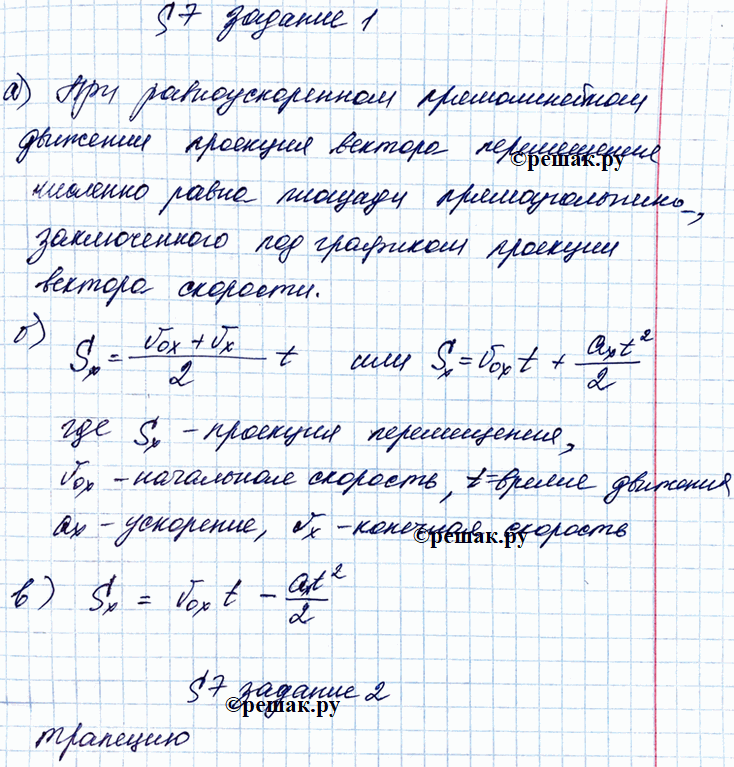 §7 задание 1
а) При равноускоренном прямолинейном
движении проекция вектора перемещения
©решак.ру
численно равна площади прямоугольника,
заключенного под графиком проекции
вектора скорости.
б) Sx = (v0x + vx)/2 t или Sx = v0x t + axt²/2
где Sx – проекция перемещения,
v0x – начальная скорость, t – время движения
ax – ускорение, vx – конечная скорость
©решак.ру
в) Sx = v0x t – axt²/2
§7 задание 2
©решак.ру
трапецию